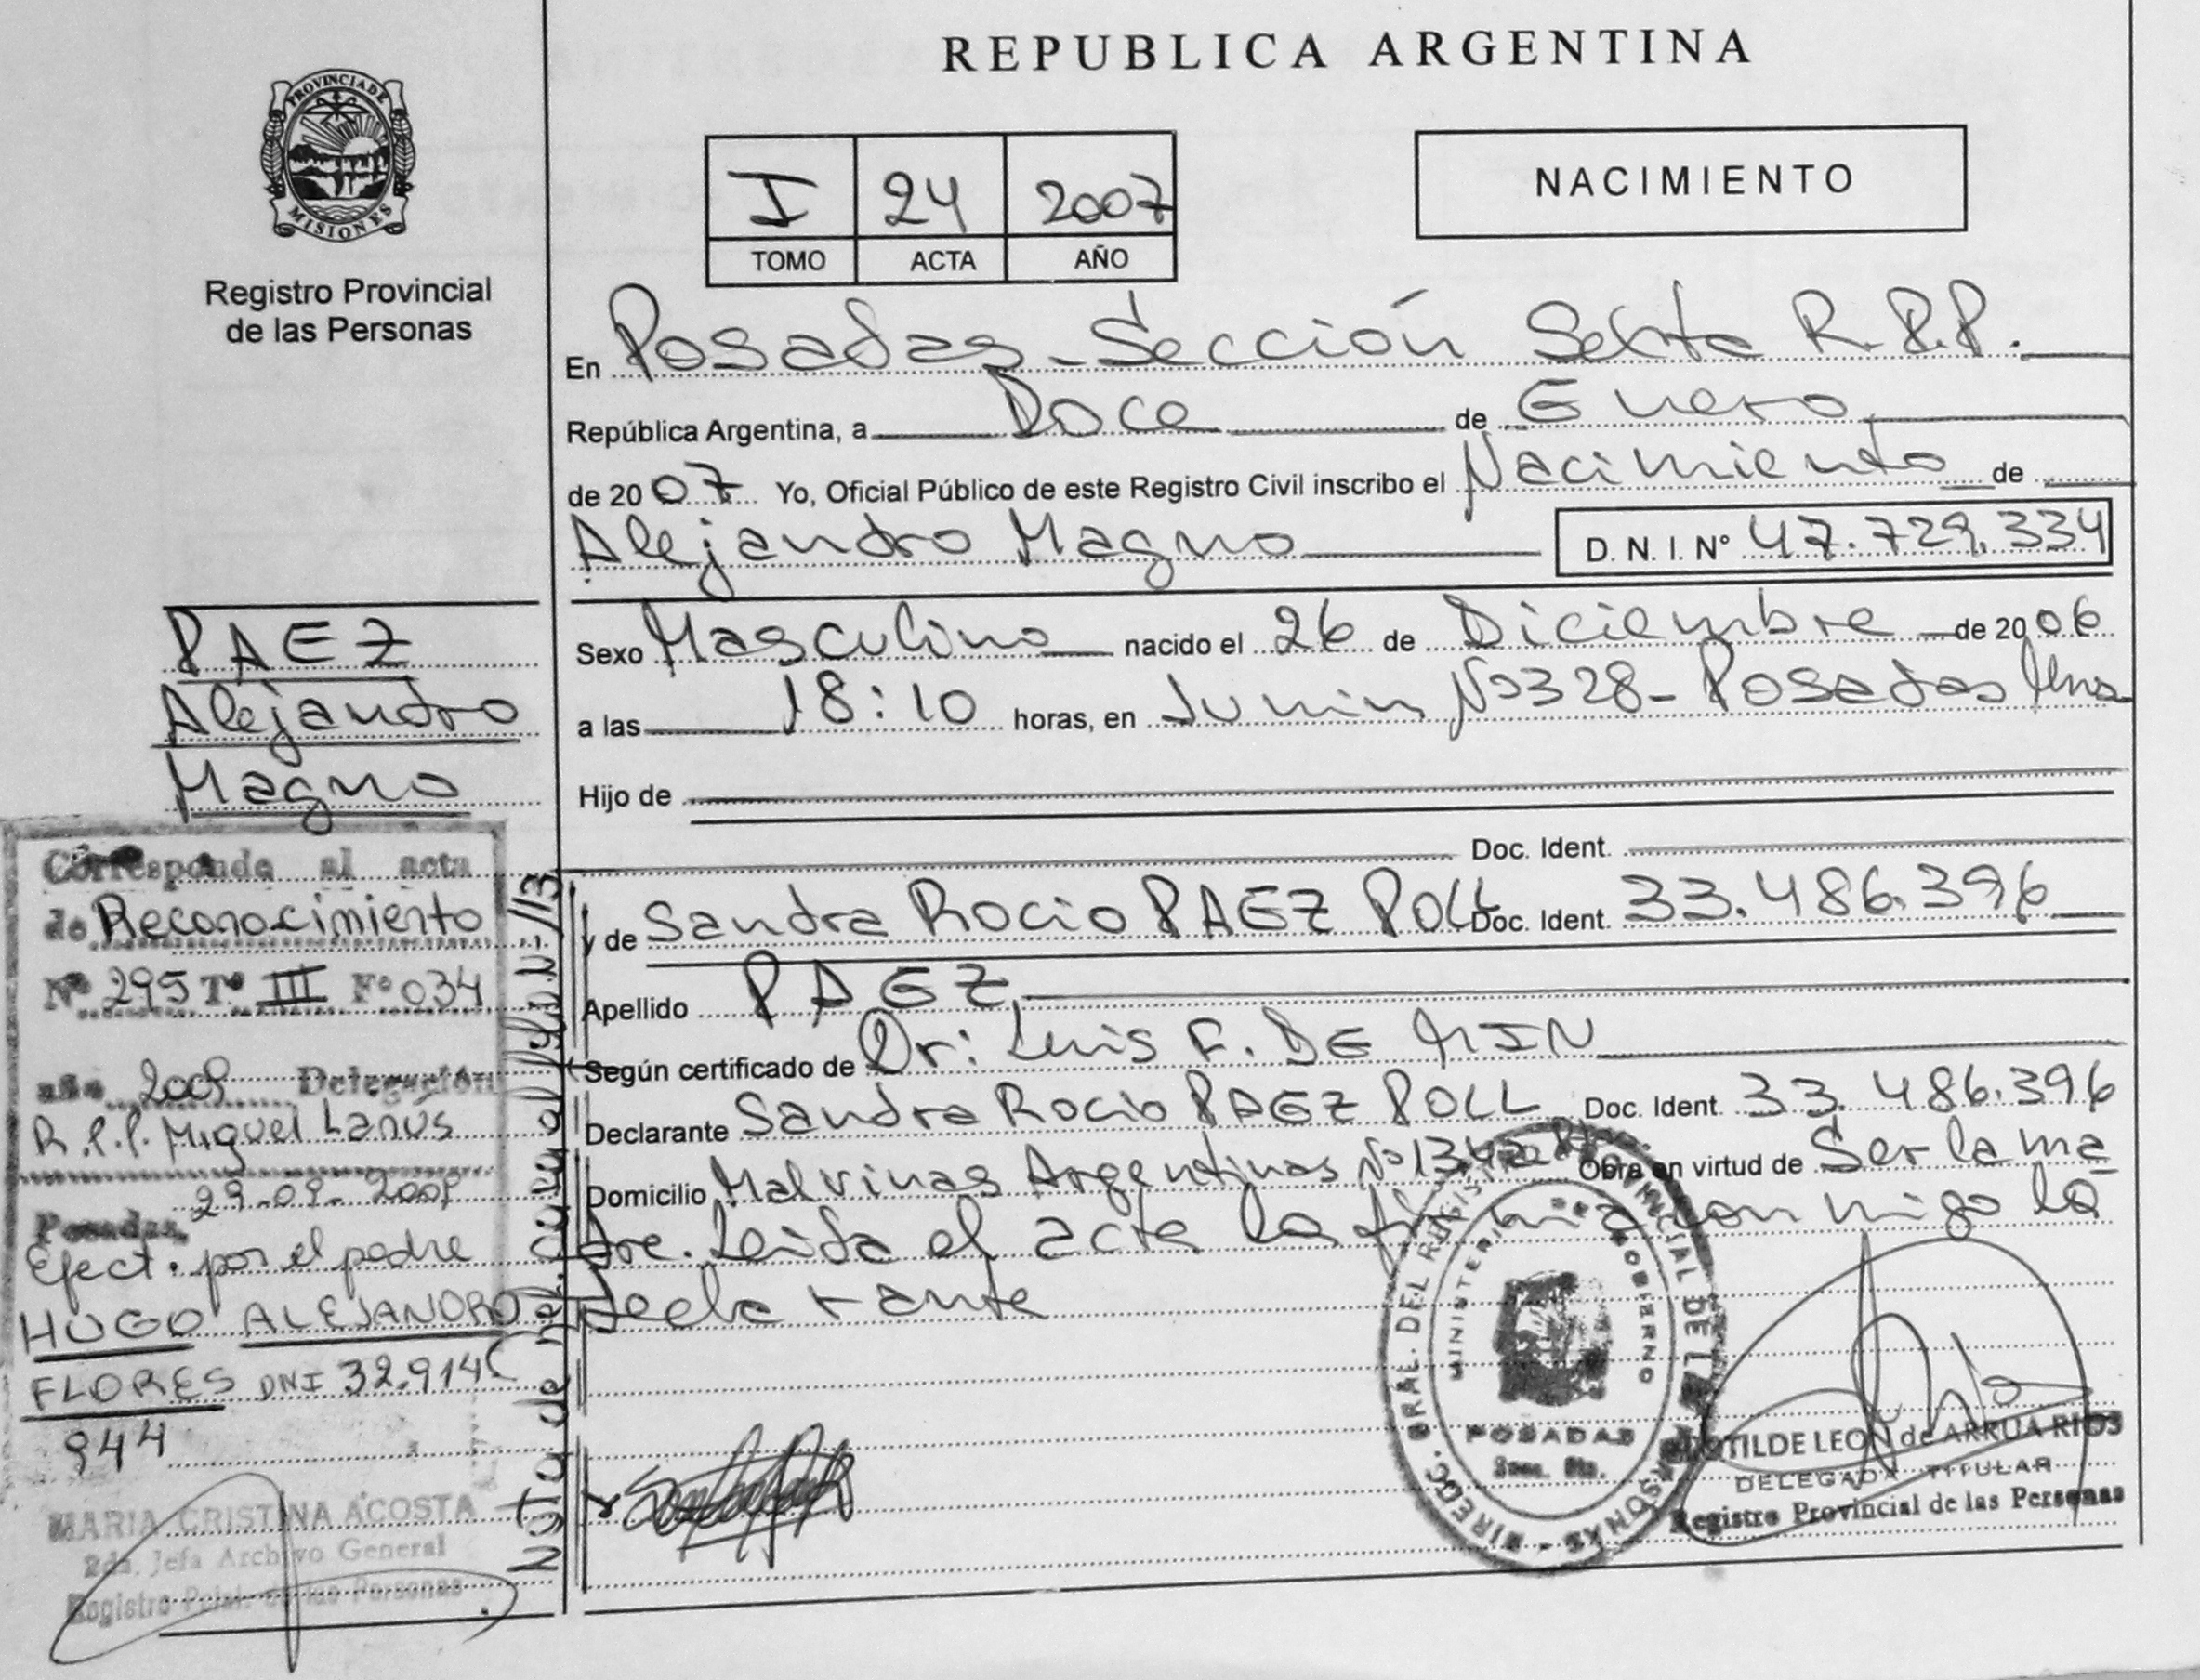 REPUBLICA ARGENTINA
PROVINCIA DE
MISIONES
Registro Provincial
de las Personas
I 24 2007
TOMO ACTA AÑO
NACIMIENTO
En Posadas - Sección Sexta R.P.P.
República Argentina, a Doce de Enero
de 2007 Yo, Oficial Público de este Registro Civil inscribo el Nacimiento de
Alejandro Magno D. N. I. Nº 47.729.334
Sexo Masculino nacido el 26 de Diciembre de 2006
a las 18:10 horas, en Junin Nº 328 - Posadas Mnes
Hijo de
Doc. Ident.
y de Sandra Rocio PAEZ POLL Doc. Ident. 33.486.396
Apellido PAEZ
Según certificado de Dr: Luis F. DE MIN
Declarante Sandra Rocio PAEZ POLL Doc. Ident. 33.486.396
Domicilio Malvinas Argentinas Nº 1342 Obra en virtud de Ser la ma
dre. Leida el acta la firma con migo la
Decla rante
PAEZ
Alejandro
Magno
Corresponde al acta
de Reconocimiento
Nº 295 Tº III Fº 034
año 2009 Delegación
R.P.P. Miguel Lanús
Posadas, 29-09-2009
Efect. por el padre
HUGO ALEJANDRO
FLORES DNI 32.914
944
MARIA CRISTINA ACOSTA
2da. Jefa Archivo General
Registro Pcial. de las Personas
Nota de
DIREC. GRAL. DEL REGISTRO PROVINCIAL DE LAS PERSONAS
MINISTERIO DE GOBIERNO
POSADAS
Secc. 6ta.
CLOTILDE LEON de ARRUA RIOS
DELEGADA TITULAR
Registro Provincial de las Personas